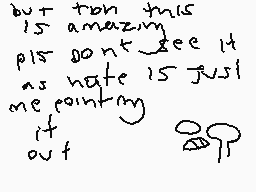 but tbh this
is amazing
pls dont see it
as hate is just
me pointing
it
out